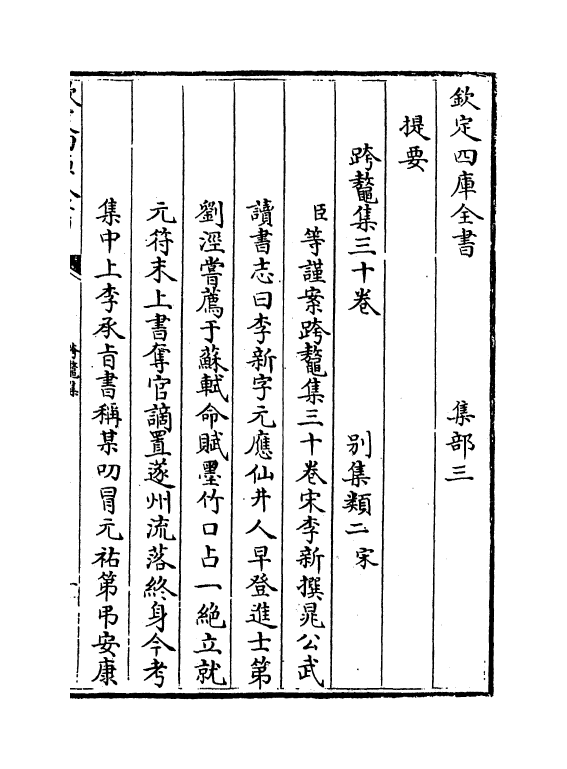 欽定四庫全書　　　集部三
提要
跨鼇集三十卷　　　別集類二宋
臣等謹案跨鼇集三十卷宋李新撰晁公武
讀書志曰李新字元應仙井人早登進士第
劉涇嘗薦于蘇軾命賦墨竹口占一絕立就
元符末上書奪官謫置遂州流落終身今考
集中上李承旨書稱某叨冒元祐第弔安康
跨鼇集